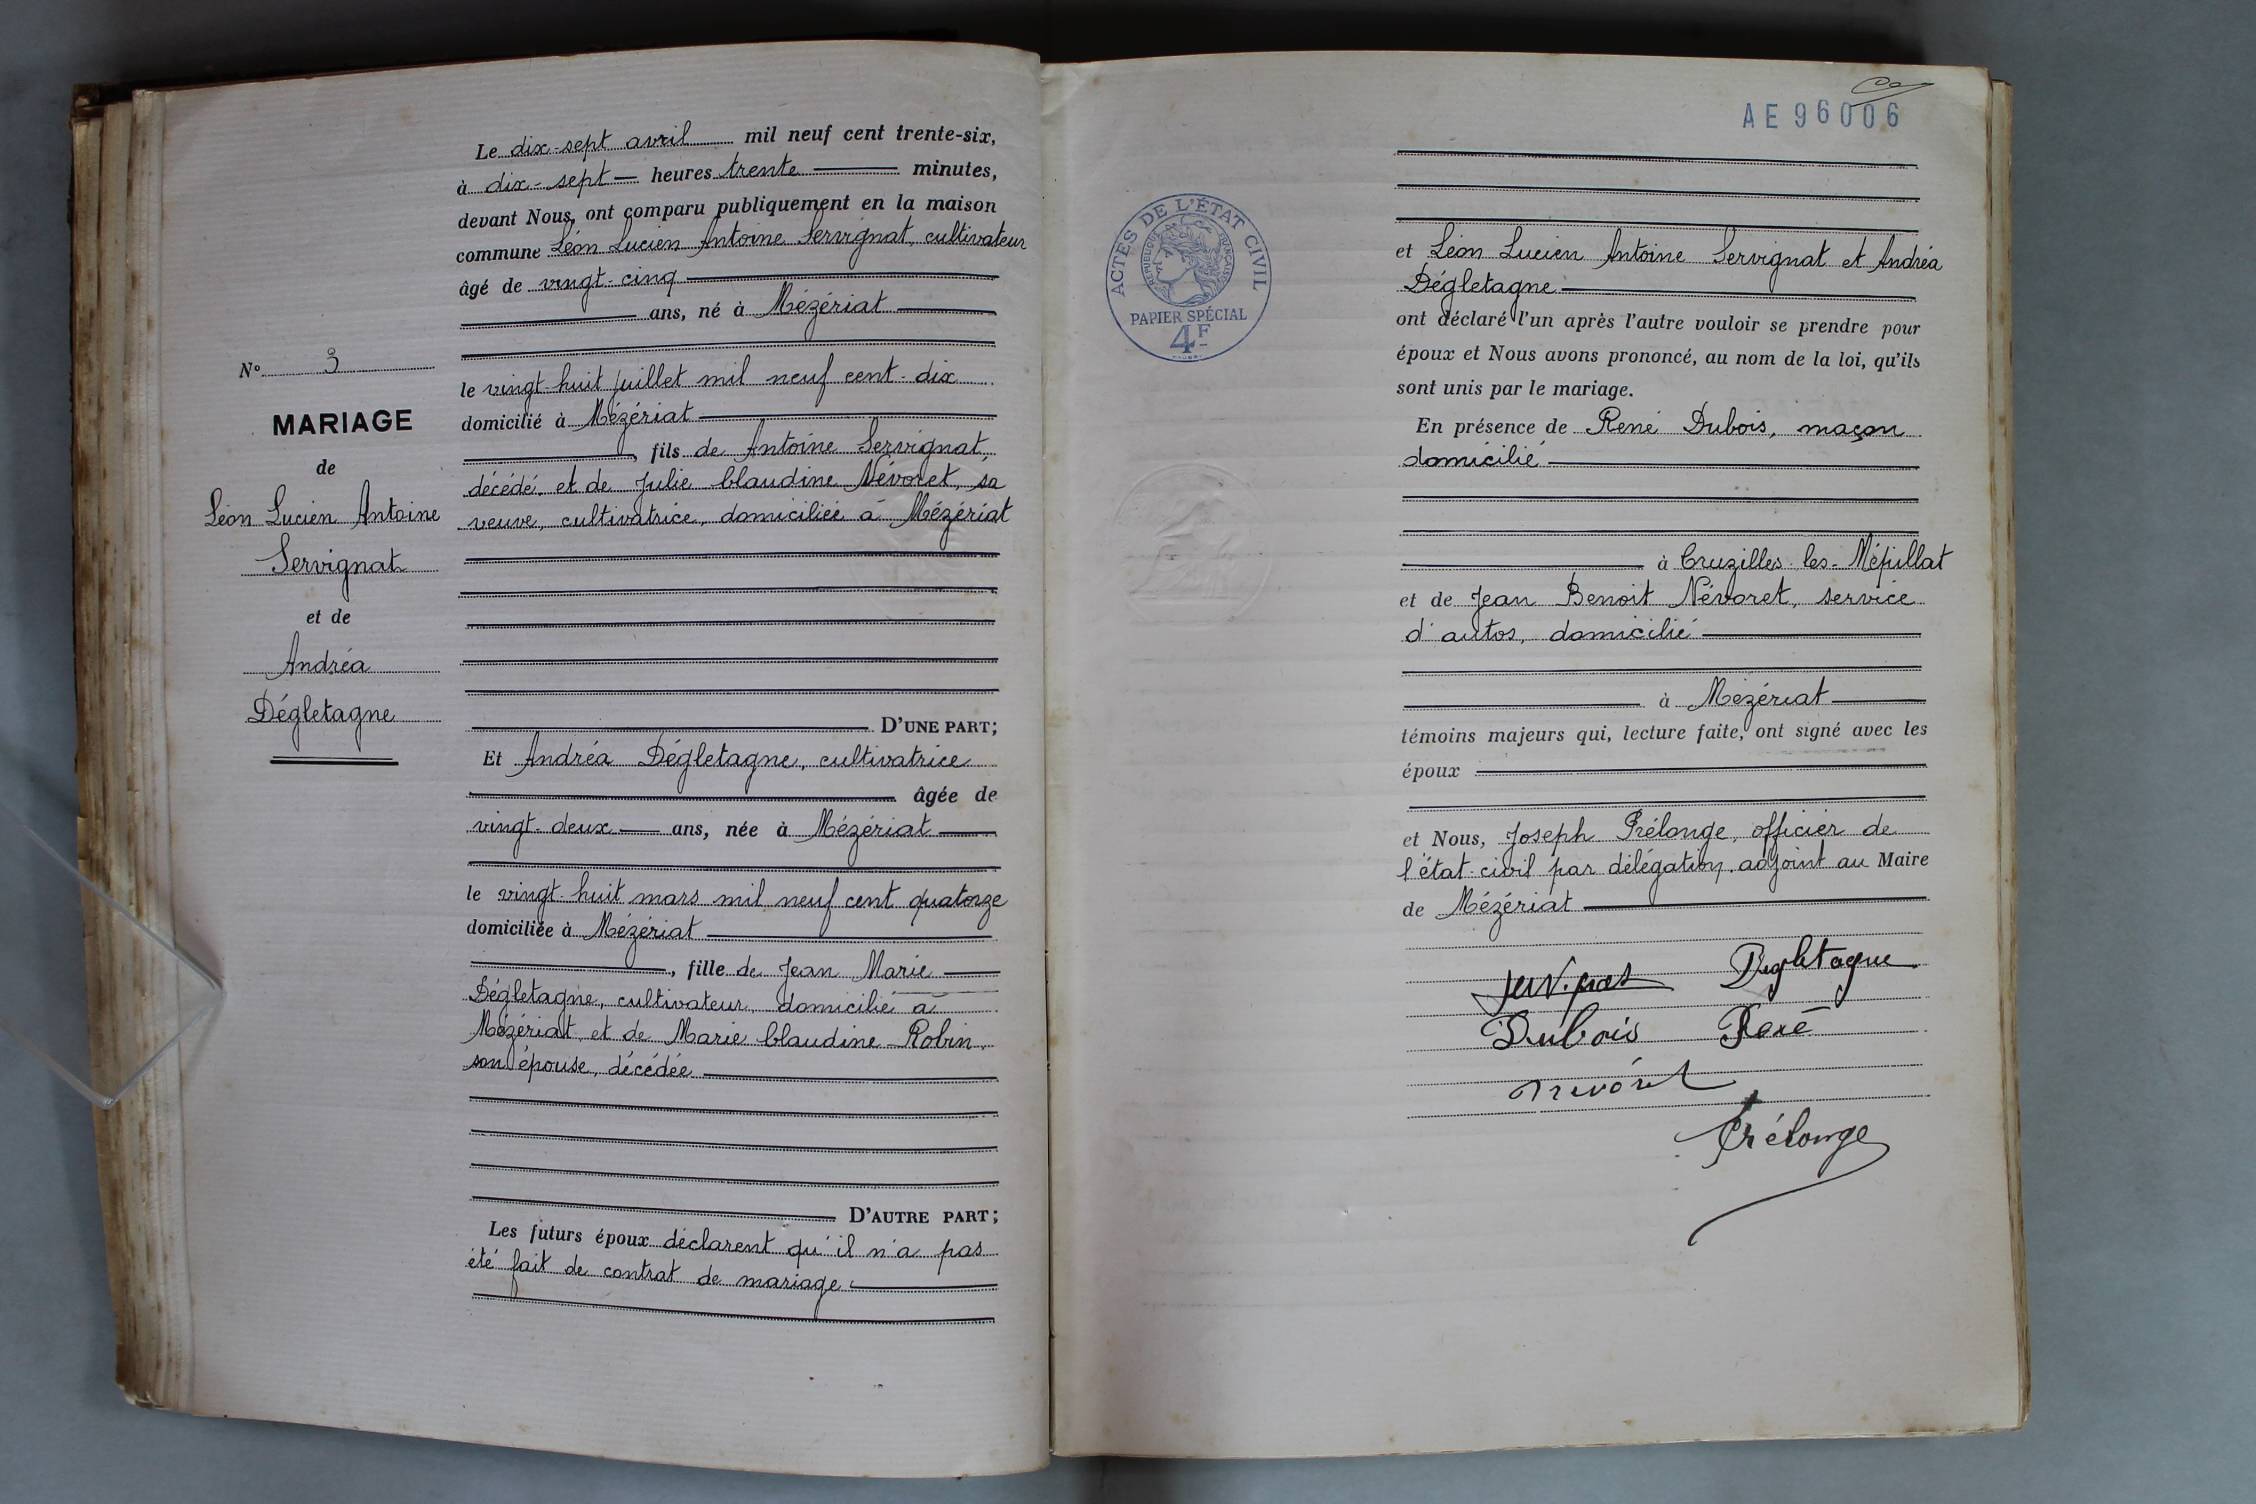 Le dix-sept avril mil neuf cent trente-six,
à dix-sept heures trente minutes,
devant Nous, ont comparu publiquement en la maison
commune Léon Lucien Antoine Servignat, cultivateur
âgé de vingt-cinq
ans, né à Mézériat
le vingt-huit juillet mil neuf cent-dix
domicilié à Mézériat
, fils de Antoine Servignat,
décédé, et de Julie Claudine Névoret, sa
veuve, cultivatrice, domiciliée à Mézériat
D'UNE PART;
Et Andréa Dégletagne, cultivatrice
âgée de
vingt-deux ans, née à Mézériat
le vingt-huit mars mil neuf cent quatorze
domiciliée à Mézériat
, fille de Jean Marie
Dégletagne, cultivateur, domicilié à
Mézériat, et de Marie Claudine Robin,
son épouse, décédée
D'AUTRE PART;
Les futurs époux déclarent qu'il n'a pas
été fait de contrat de mariage.
N° 3
MARIAGE
de
Léon Lucien Antoine
Servignat
et de
Andréa
Dégletagne
AE 96006
ACTES DE L'ÉTAT CIVIL
RÉPUBLIQUE FRANÇAISE
PAPIER SPÉCIAL
4F
et Léon Lucien Antoine Servignat et Andréa
Dégletagne
ont déclaré l'un après l'autre vouloir se prendre pour
époux et Nous avons prononcé, au nom de la loi, qu'ils
sont unis par le mariage.
En présence de René Dubois, maçon
domicilié
à Cruzilles-les-Mépillat
et de Jean Benoit Névoret, service
d'autos, domicilié
à Mézériat
témoins majeurs qui, lecture faite, ont signé avec les
époux
et Nous, Joseph Prélonge, officier de
l'état-civil par délégation, adjoint au Maire
de Mézériat
Servignat Dégletagne
Dubois René
Nevoret
Prélonge